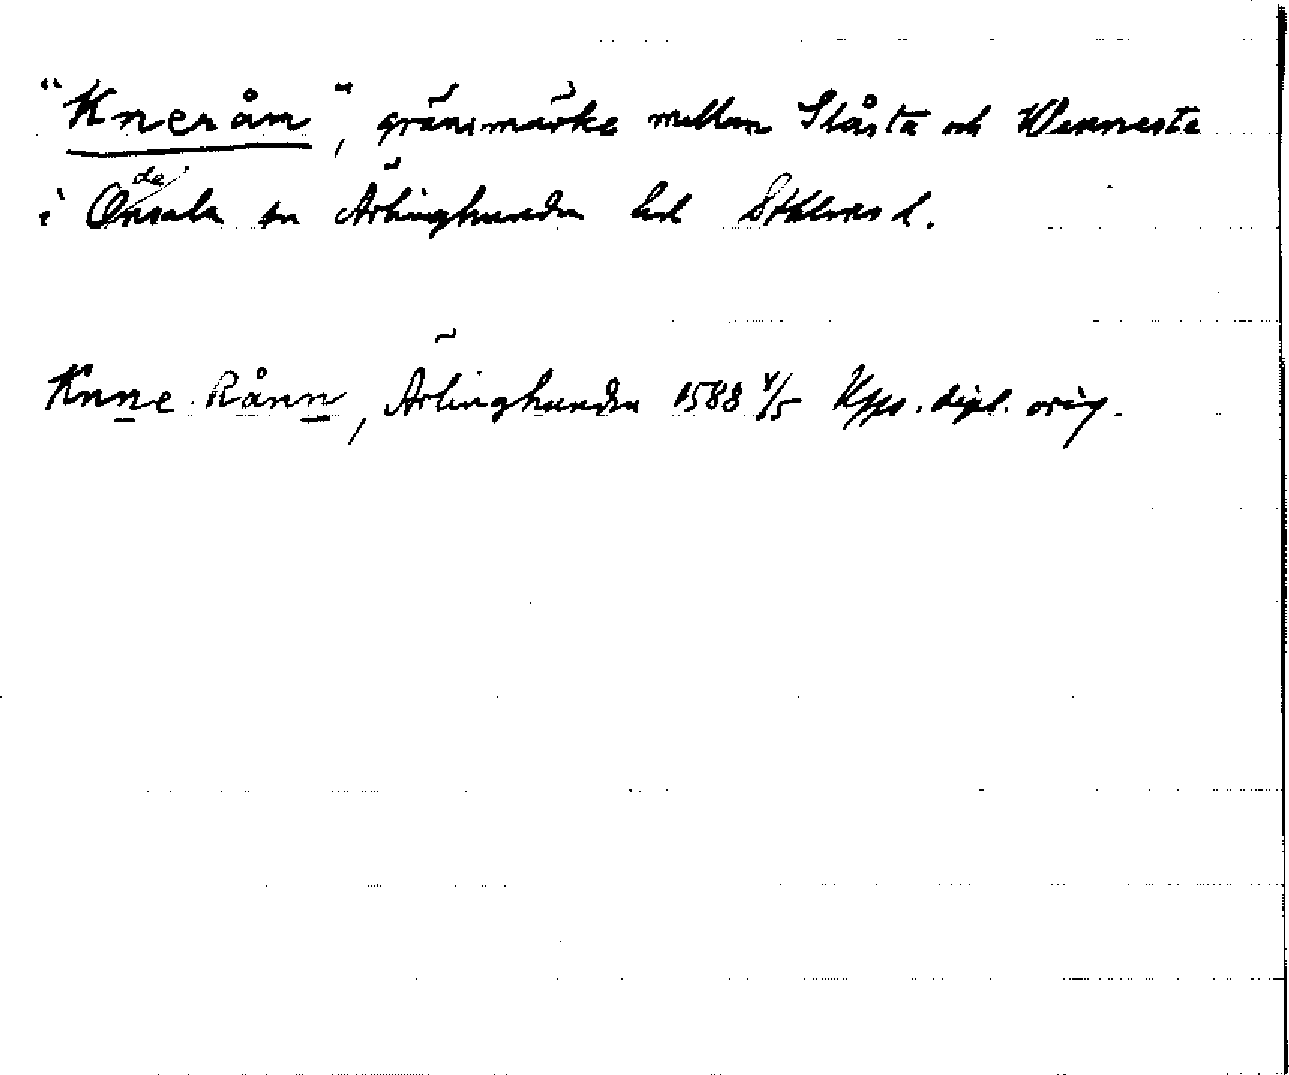 "Kneråm", gränsmärke mellan Slåsta och Wenneste
i Odensala sn Ärlinghundra hd Sthlms l.
Knne Rånn, Ärlinghundra 1588 4/5 Kpps. dipl. orig.